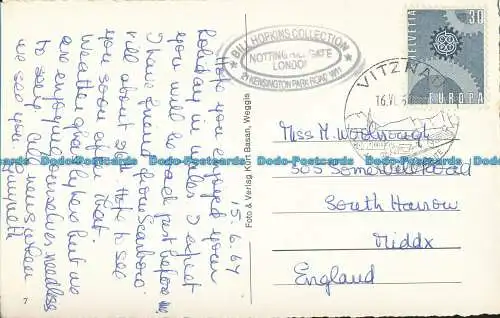 15.6.67
Hope you enjoyed your
holiday in Wales I expect
you will be back just before me
I have heard from Scarboro.
will about it. Hope to see
you soon after that.
Weather grand here but we
are enjoying ourselves needless
to say. All news when
we see you.
Gwyneth
7
Foto & Verlag Kurt Basan, Weggis
★ BILL HOPKINS COLLECTION ★
NOTTING HILL GATE
LONDON
KENSINGTON PARK ROAD W11
VITZNAU
16.VI.
HELVETIA
30
CEPT
EUROPA
Miss M. Woolnough
505 Somervell Road
South Harrow
Middx
England
Dodo-Postcards Dodo-Postcards Dodo-Postcards Dodo-Postcards